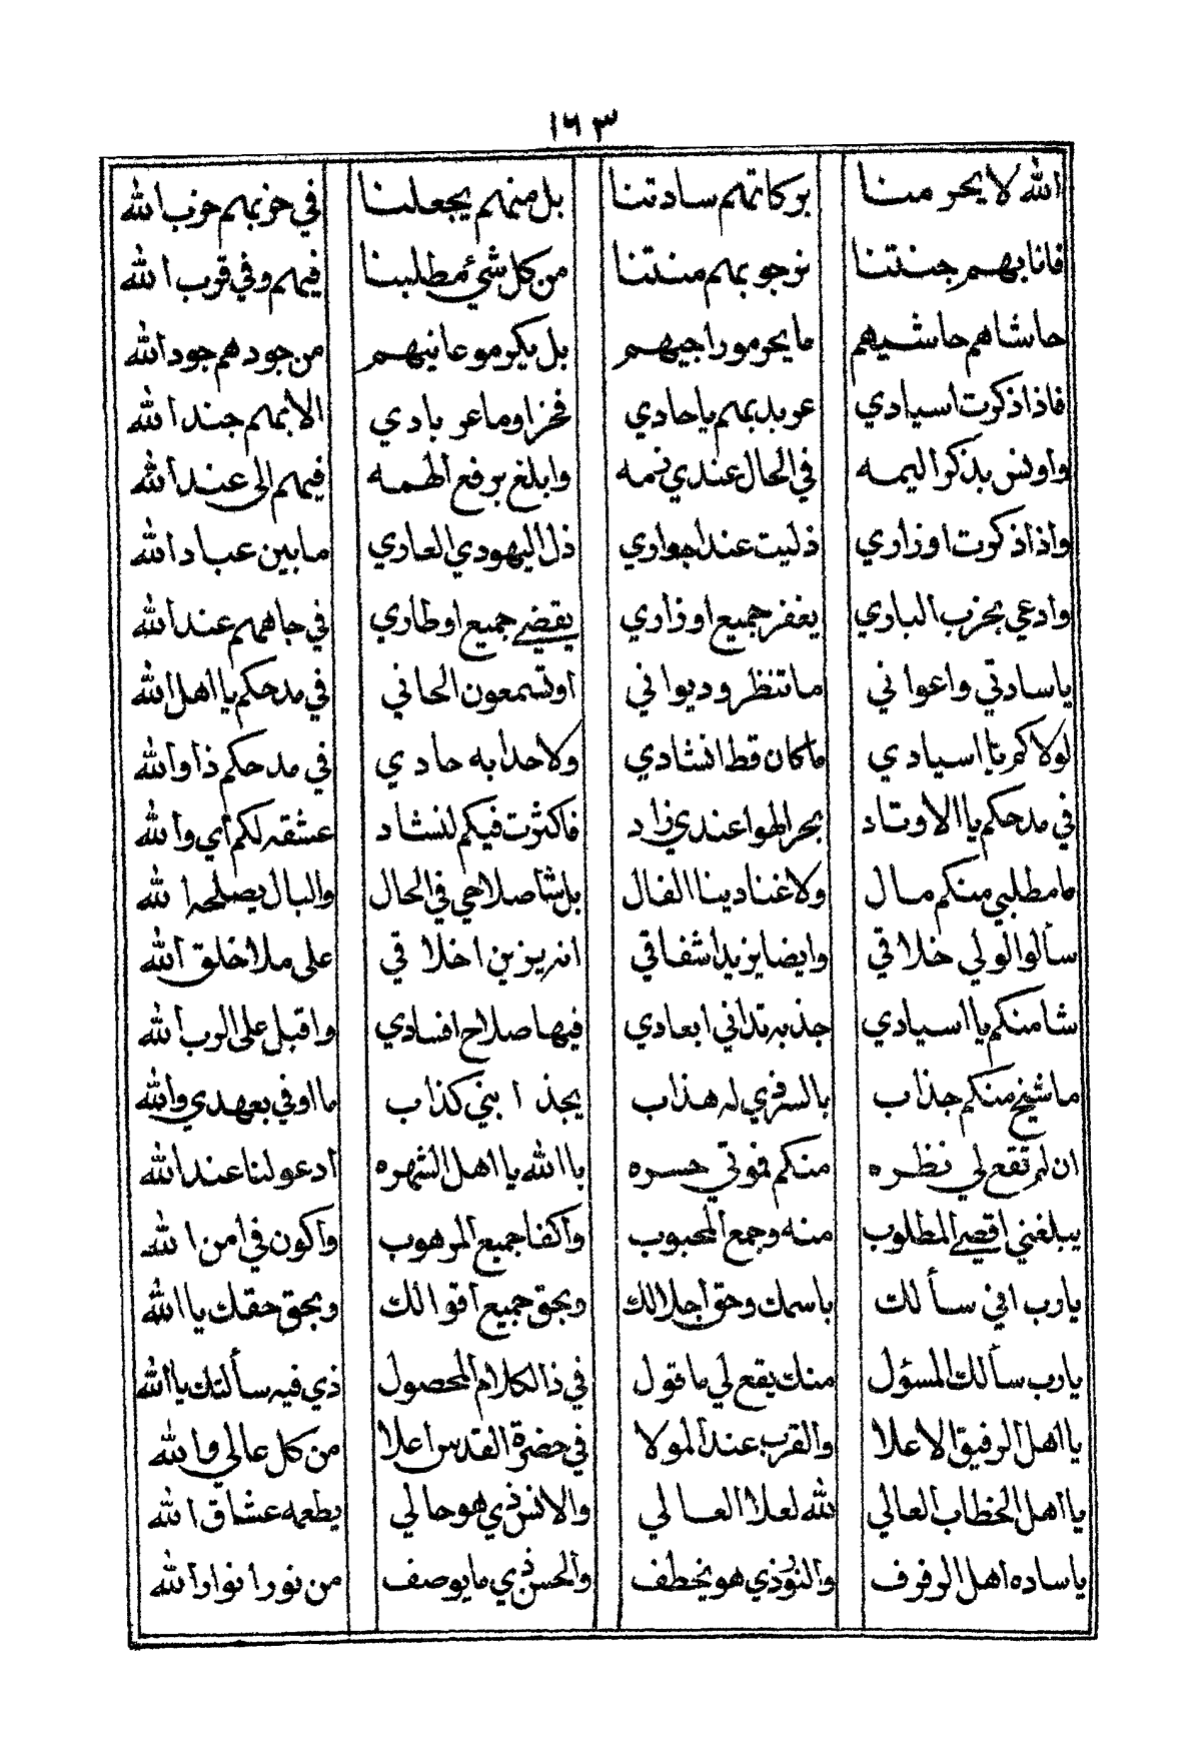 ١٦٣
الله لا يحرمنا بركاتهم سادتنا بل منهم يجعلنا في حزبهم حزب الله
فانا بهم جنتنا نرجو بهم منتنا من كل شيء مطلبنا فيهم وفي قرب الله
حاشاهم حاشيهم ما يحرموا راجيهم بل يكرموا عانيهم من جودهم جود الله
فاذا ذكرت اسيادي عربد بهم يا حادي فخرا وما عربادي الا بهم جند الله
واونس بذكر اليمه في الحال عندي نمه وابلغ برفع الهمه فيهم الى عند الله
واذا ذكرت اوزاري ذليت عند اجواري ذل اليهودي العاري مابين عباد الله
وادعي بحزب الباري يغفر جميع اوزاري يقضي جميع اوطاري في جاههم عند الله
يا سادتي واعواني ما تنظرو ديواني او تسمعون الحاني في مدحكم يا اهل الله
لولاكم يا اسيادي ما كان قط انشادي ولا حدا به حادي في مدحكم ذا والله
في مدحكم يا الاوتاد بحر الهوا عندي زاد فاكثرت فيكم لنشاد عشقه لكم اي والله
ما مطلبي منكم مال ولا غنا دينا الفال بل شا صلاحي في الحال والبال يصلحه الله
سألوا الولي خلاقي وايضا يزيد اشفاقي انه يزين اخلاقي على ملا خلق الله
شا منكم يا اسيادي جذبه تداني ابعادي فيها صلاح افسادي واقبل على الرب الله
ما شيخ منكم جذاب بالسر ذي له هذاب يجذابني كذاب ما اوفي بعهدي والله
ان لم تقع لي نظره منكم فموتي حسره با الله يا اهل الشهره ادعو لنا عند الله
يبلغني اقصى المطلوب منه وجمع المحبوب واكفا جميع المرهوب واكون في امن الله
يارب اني سألك باسمك وحق اجلالك وبحق جميع اقوالك وبحق حقك يا الله
يارب سألك المسؤل منك يقع لي ما قول في ذا الكلام المحصول ذي فيه سألتك يا الله
يا اهل الرفيق الاعلا والقرب عند المولا في حضرة القدس اعلا من كل عالي والله
يا اهل الخطاب العالي لله لعلا العالي والانس ذي هو حالي يطعمه عشاق الله
يا ساده اهل الرفرف والنور ذي هو يخطف والحسن ذي ما يوصف من نور انوار الله